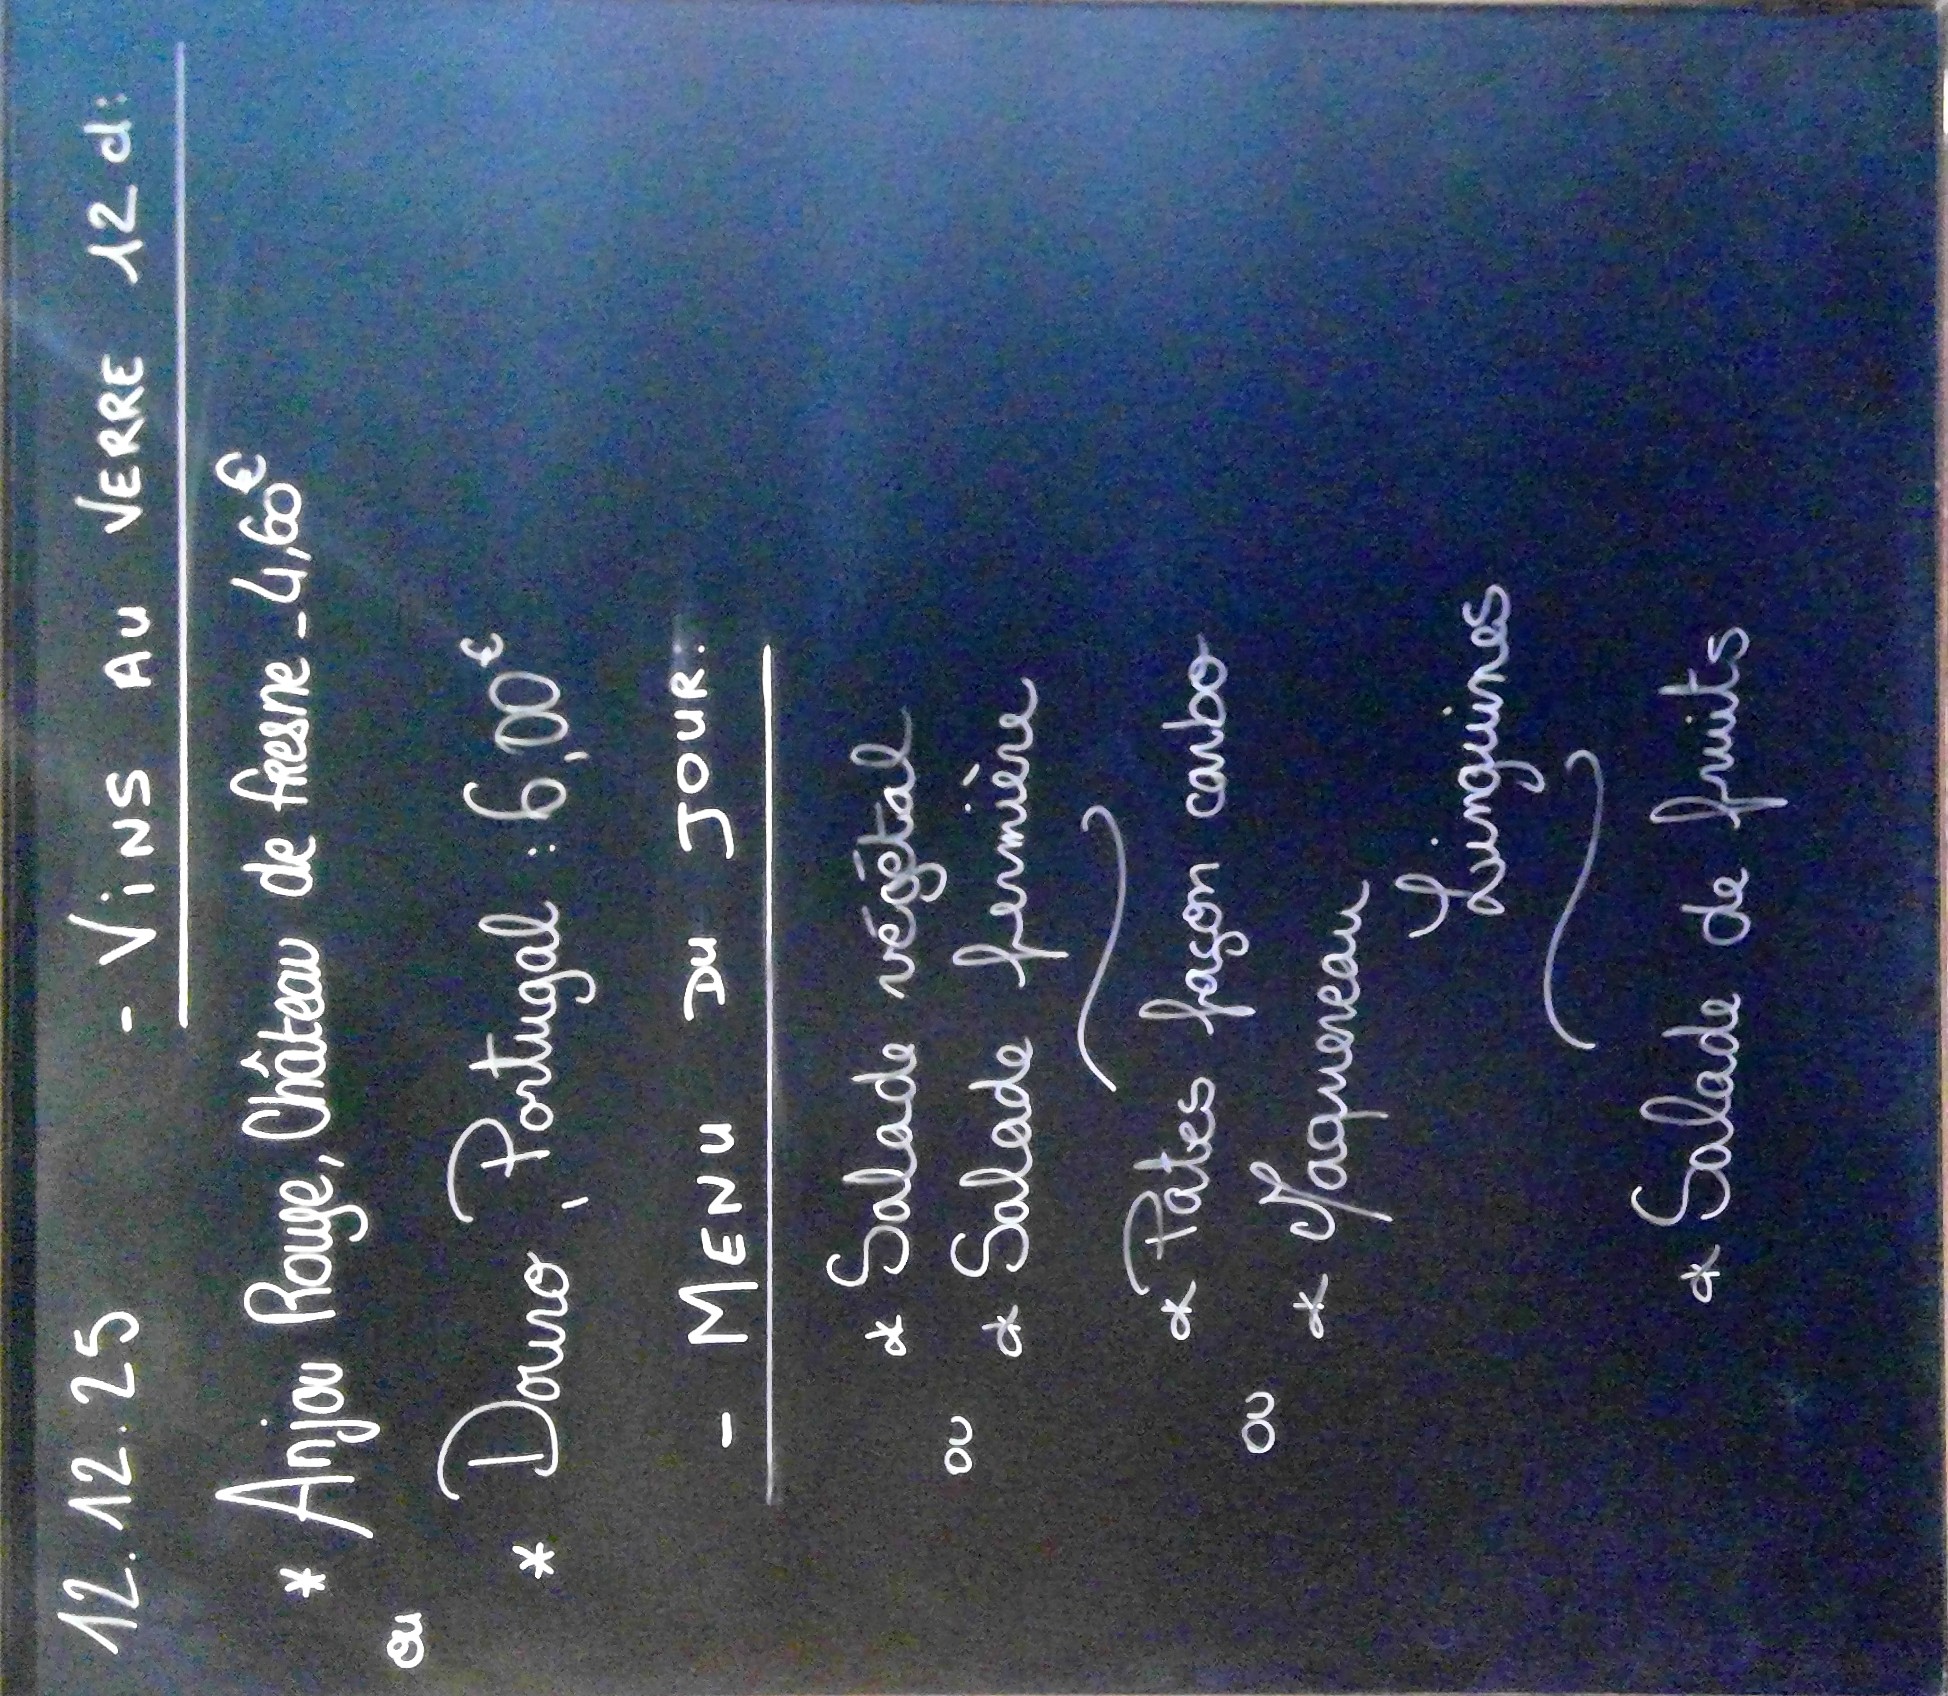 12.12.25 - ViNS AU VERRE 12 cl:
* Anjou Rouge, Château de fresne - 4,60€
ou
* Douro, Portugal : 6,00€
- MENU DU JOUR:
* Salade végétal
ou
* Salade fermière
* Pates façon carbo
ou
* Maquereau
↳ Linguines
* Salade de fruits